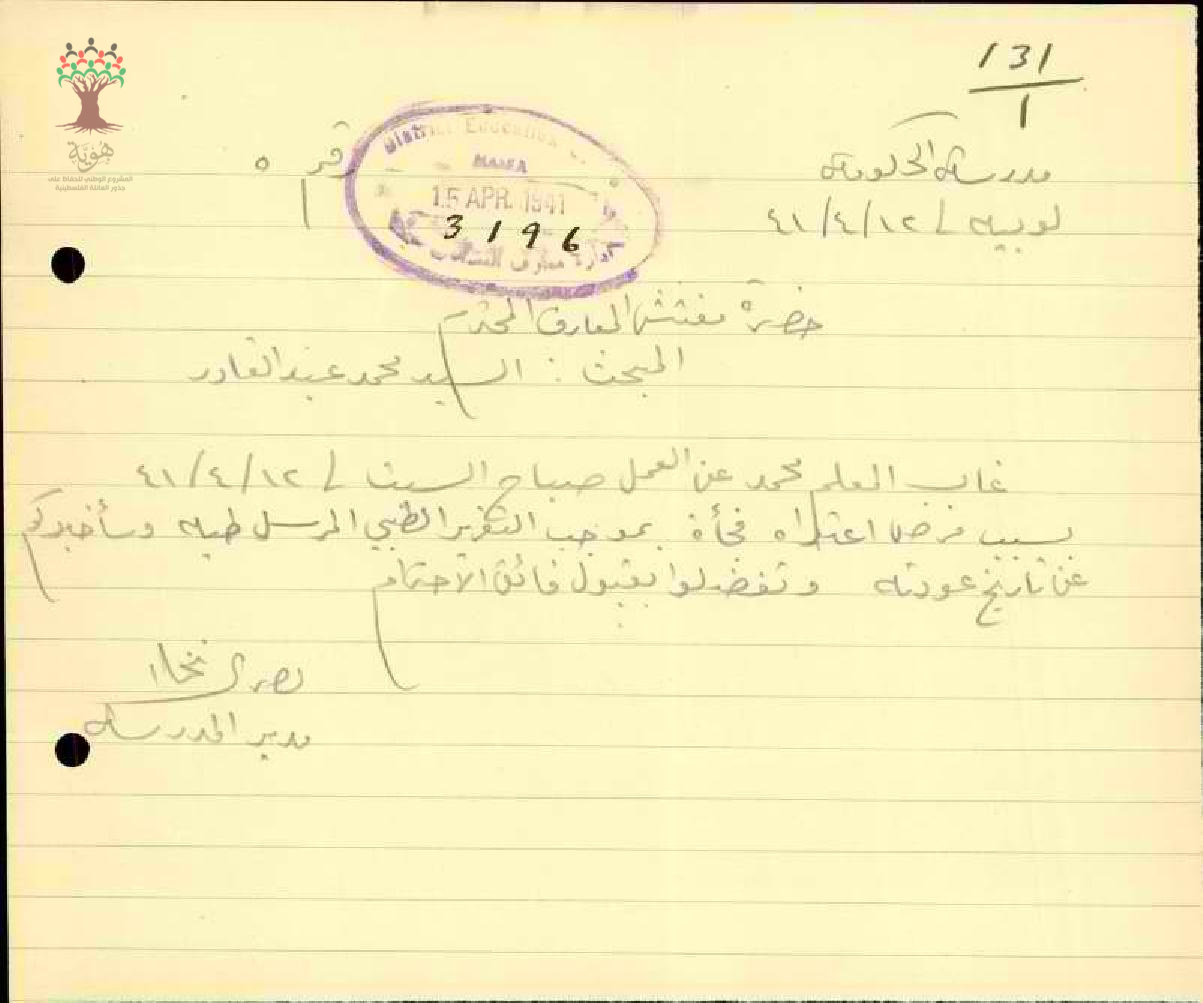 131
1
هوية
المشروع الوطني للحفاظ على
جذور العائلة الفلسطينية
مدرسة الحكومة
لوبيه / ١٢/٤/٤١
رقم ٥
District Education
HAIFA
15 APR. 1941
3196
ادارة معارف
حضرة مفتش المعارف المحترم
المبحث : السيد محمد عبد القادر
غاب المعلم محمد عن العمل صباح السبت / ١٢/٤/٤١
بسبب مرض اعتراه فجأة بموجب التقرير الطبي المرسل طيه وسأخبركم
عن تاريخ عودته وتفضلوا بقبول فائق الاحترام
مدير المدرسة